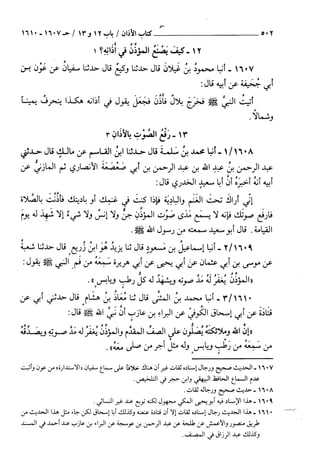 ٥٠٢ كتاب الأذان / باب ١٢ و ١٣ / حـ ١٦٠٧ - ١٦١٠
١٢ - كيفَ يَصْنَعُ المؤذّنُ في أذانِهِ؟ ١
١٦٠٧ - أنبا محمودُ بنُ غَيلانَ قال حدثنا وكيعٌ قال حدثنا سفيانُ عن عَوْنِ بـن
أبي جُحَيفَةَ عن أبيه قال:
أتيتُ النبيَّ ﷺ فخَرَجَ بلالٌ فأذَّنَ فجَعَلَ يقول في أذانه هكـذا ينحرفُ يمينـاً
وشمالاً.
١٣ - رَفْعُ الصَّوْتِ بالأذانِ ٣
١/١٦٠٨ - أنبا محمد بنُ سلمـةَ قال حدثنا ابنُ القـاسم عن مالـكٍ قال حـدثني
عبد الرحمن بنُ عبدِ الله بن عبد الرحمن بن أبي صَعْصَعَةَ الأنصاري ثم المازنيُّ عن
أبيه أنهُ أخبَرَهُ أنَّ أبا سعيدٍ الخدري قال:
إني أراكَ تحبُّ الغَنَمَ والباديَةَ فإذا كنتَ في غنمِك أو باديتِك فأذَّنْتَ بالصَّلاةِ
فارفع صوتَك فإنَّه لا يسمعُ مَدَى صوْتِ المؤذنِ جنٌّ ولا إنسٌ ولا شيءٌ إلا شهدَ له يومَ
القيامة. قال أبو سعيد سمعته من رسول الله ﷺ.
٢/١٦٠٩ - أنبا إسماعيلُ بن مسعودٍ قال ثنا يزيدُ هوَ ابنُ زُريع قال حدثنا شعبةُ
عن موسى بن أبي عثمان عن أبي يحيى عن أبي هريرة سَمِعَهُ من فَمِ النبي ﷺ يقول:
«المؤذنُ يُغفَرُ لَهُ مدَّ صوتِه ويشهَدُ له كلُّ رطبٍ ويابسٍ».
٣/١٦١٠ - أنبا محمد بنُ المثنى قال ثنا مُعاذُ بنُ هشام قال حدثني أبي عن
قتادَةَ عن أبي إسحاق الكوفيِّ عن البراءِ بن عازبٍ أنَّ نبيَّ الله ﷺ قال:
«إنَّ الله وملائكتَهُ يُصلُّون على الصفِّ المقدَّمِ والمؤذنُ يُغفَرُ له مدَّ صوتِهِ ويُصَدِّقُهُ
من سَمِعَهُ من رَطبٍ ويابسٍ ولهُ مثلُ أجرِ من صلى معَهُ».
١٦٠٧ - الحديث صحيح ورجال إسناده ثقات غير أن هناك خلافاً على سماع سفيان «الاستدارة» من عون وأثبت
عدم السماع الحافظ البيهقي وابن حجر في التلخيص.
١٦٠٨ - حديث صحيح ورجاله ثقات.
١٦٠٩ - هذا الإسناد فيه أبو يحيى المكي مجهول لكنه توبع عند غير النسائي.
١٦١٠ - هذا الحديث رجال إسناده ثقات إلا أن قتادة عنعنه وكذلك أبا إسحاق لكن جاء مثل هذا الحديث من
طريق منصور والأعمش عن طلحة عن عبد الرحمن بن عوسجة عن البراء بن عازب عند أحمد في المسند
وكذلك عبد الرزاق في المصنف.